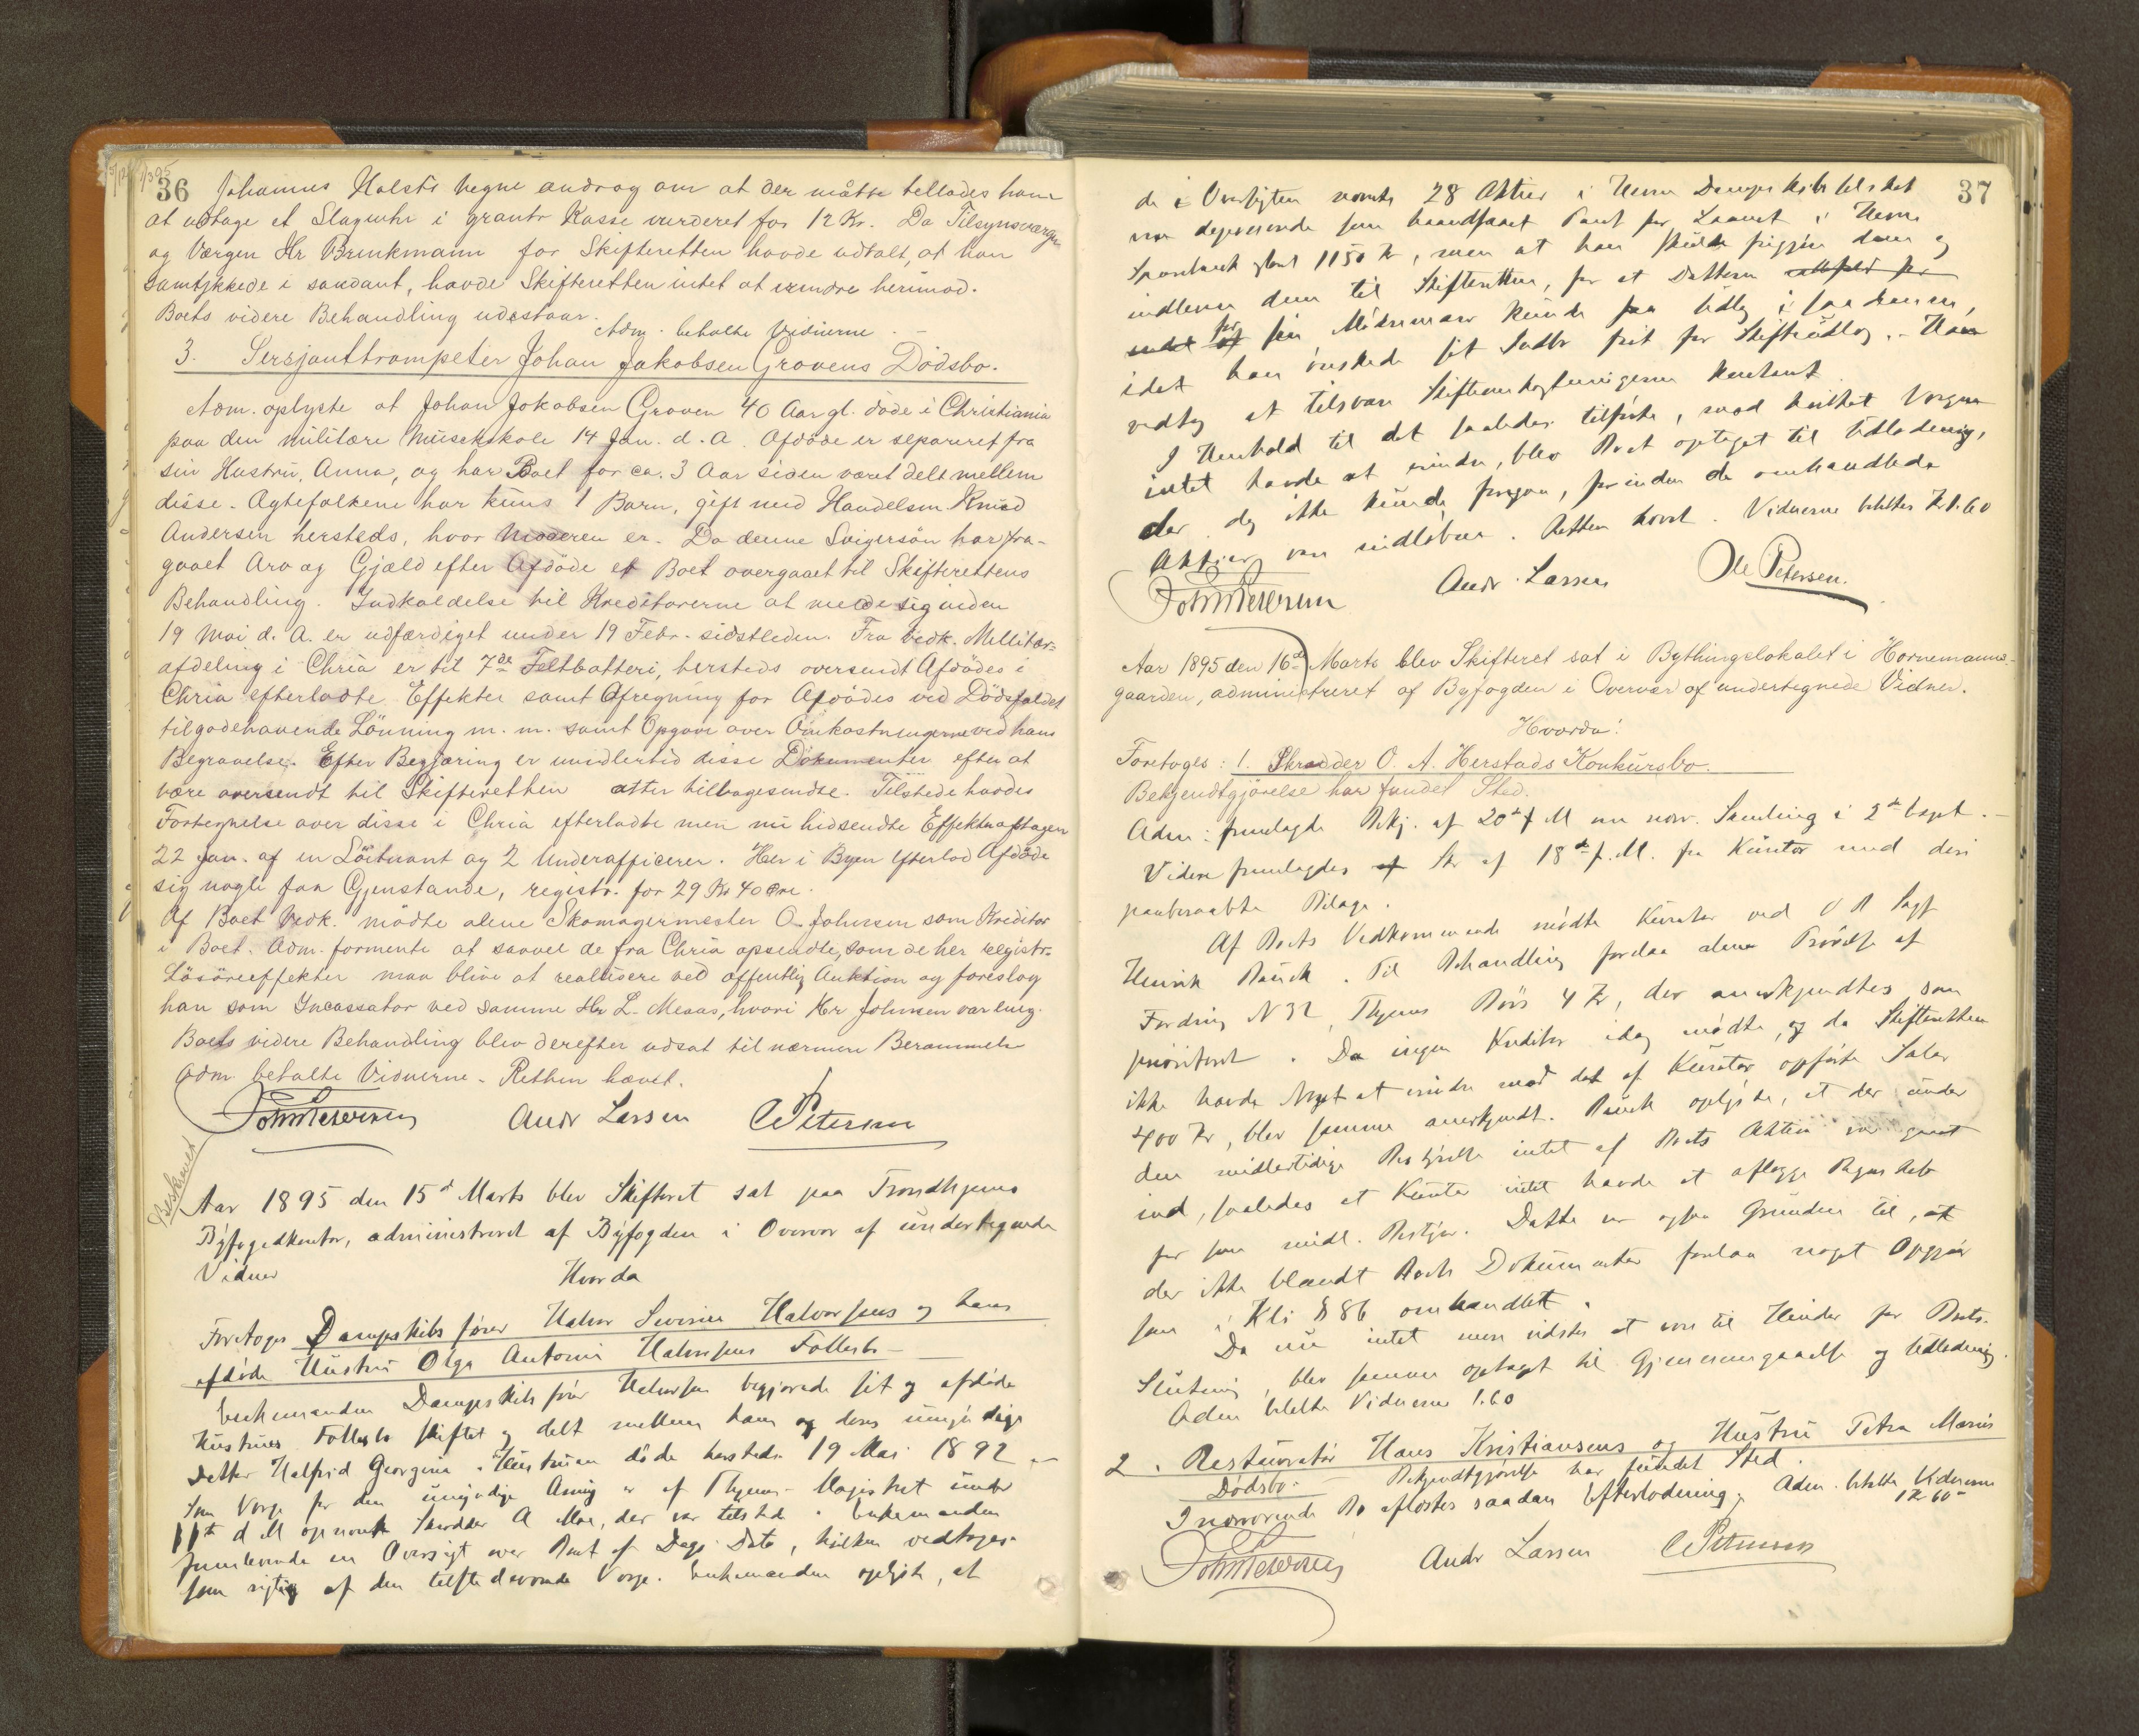 36 Johannes Holsts vegne androg om at der måtte tillades ham
at udtage et Slaguhr i grantr Kasse vurderet for 12 Kr. Da Tilsynsværgen
og Værgen Hr Brinkmann for Skifteretten havde udtalt, at han
samtykkede i saadant, havde Skifteretten intet at erindre herimod.
Boets videre Behandling udestaar.
Adm. betalte Vidnerne. -
3. Sersjanttrompeter Johan Jakobsen Grovens Dödsbo.
Adm. oplyste at Johan Jakobsen Groven 40 Aar gl. döde i Christiania
paa den militære Musikskole 14 Jan. d. A. Afdöde er separeret fra
sin Hustru, Anna, og har Boet for ca. 3 Aar siden været delt mellem
disse. Ægtefolkene har kuns 1 Barn, gift med Handelsm. Knud
Andersen hersteds, hvor Moderen er. Da denne Svigersön har fra-
gaaet Arv og Gjæld efter Afdöde er Boet overgaaet til Skifterettens
Behandling. Indkaldelse til Kreditorerne at melde sig inden
19 Mai d. A. er udfærdiget under 19 Febr. sidstleden. Fra vedk. Militær-
afdeling i Chria er til 7de Feltbatteri, hersteds oversendt Afdödes i
Chria efterladte Effekter samt Afregning for Afdödes ved Dödsfaldet
tilgodehavende Lönning m. m. samt Opgave over Omkostningerne ved hans
Begravelse. Efter Begjæring er imidlertid disse Dokumenter efter at
være oversendt til Skifteretten atter tilbagesendte. Tilstede havdes
Fortegnelse over disse i Chria efterladte men nu hidsendte Effekter optagen
22 Jan. af en Löitnant og 2 Underofficerer. Her i Byen efterlod Afdöde
sig nogle faa Gjenstande, registr. for 29 Kr 40 Öre.
Af Boet Vedk. mödte alene Skomagermester O. Johnsen som Kreditor
i Boet. Adm. formente at saavel de fra Chria opsendte, som de her registr.
Lösöreeffekter maa blive at realisere ved offentlig Auktion og foreslog
han som Incassator ved samme Hr L. Meaas, hvori Hr Johnsen var enig.
Boets videre Behandling blev derefter udsat til nærmere Berammelse
Adm. betalte Vidnerne. Retten hævet.
Andr Larsen C Petersen
Beskrevet
Aar 1895 den 15d Marts blev Skifteret sat paa Trondhjems
Byfogedkontor, administreret af Byfogden i Overvær af undertegnede
Vidner Hvorda
Foretoges Dampskibsförer Halvor Severin Halvorsens og hans
afdöde Hustru Olga Antonie Halvorsens Fællesbo -
Enkemanden Dampskibsförer Halvorsen begjærede sit og afdöde
Hustrues Fællesbo skiftet og delt mellem ham og deres umyndige
Datter Halfrid Georgine. Hustruen döde hersteds 19 Mai 1892. -
Som Værge for den umyndige Arving er af Thjems Magistrat under
11te d M opnævnt Skrædder A Moe, der var tilstede. Enkemanden
fremlagde en Oversigt over Boet af Dags Dato, hvilken vedtoges
som rigtig af den tilstedeværende Værge. Enkemanden oplyste, at
37
de i Oversigten nævnte 28 Aktier i Hevne Dampskibsselskab
var deponerende som haandfaaet Pant for Laanet i Hevne
Sparebank stort 1150 Kr, men at han skulde frigjöre dem og
indlevere dem til Skifteretten, for at Datteren
for sin Mödrenearv kunde faa Udlæg i saadanne,
idet han önskede sit Indbo frit for Skifteudlæg. - Han
vedtog at tilsvare Skifteomkostningerne kontant
I Henhold til det saaledes tilförte, mod hvilket Værgen
intet havde at erindre, blev Boet optaget til Udlodning,
der dog ikke kunde foregaa, förinden de omhandlede
Aktier var indlöbne. Retten hævet. Vidnerne betaltes Kr 1.60
Andr. Larsen Ole Petersen.
Aar 1895 den 16d Marts blev Skifteret sat i Bythingslokalet i Hornemanns-
gaarden, administreret af Byfogden i Overvær af undertegnede Vidner.
Hvorda!
Foretoges: 1. Skrædder O. A. Herstads Konkursbo.
Bekjendtgjörelse har fundet Sted.
Adm: fremlagde Bekj. af 20de f M om nærv. Samling i 2de Expl. -
Videre fremlagdes Skr af 18de f. M. fra Kurator med deri
paaberaabte Bilage.
Af Boets Vedkommende mödte Kurator ved O R Sagf
Henrik Bauck. Til Behandling forelaa alene Prövelse af
Fordring N 32, Thjems Börs 4 Kr, der anerkjendtes som
prioriteret. Da ingen Kreditor idag mödte, og da Skifteretten
ikke havde Noget at erindre mod det af Kurator opförte Salær
400 Kr, blev samme anerkjendt. Bauck oplyste, at der under
den midlertidige Bestyrelse intet af Boets Aktiva var gaaet
ind, saaledes at Kurator intet havde at aflægge Regnskab
for som midl. Bestyr. Dette var ogsaa Grunden til, at
der ikke blandt Boets Dokumenter forelaa noget Opgjör
som i Kls § 86 omhandlet.
Da nu intet mere vidstes at være til Hinder for Boets
Slutning, blev samme optaget til Gjennemgaaelse og Udlodning.
Adm betalte Vidnerne 1.60
2. Restauratör Hans Kristiansens og Hustru Petra Maries
Dödsbo. Bekjendtgjörelse har fundet Sted.
I nærværende Bo afsluttes saadan Efterlodning. Adm. betalte Vidnerne
1 Kr 60
Andr Larsen C Petersen